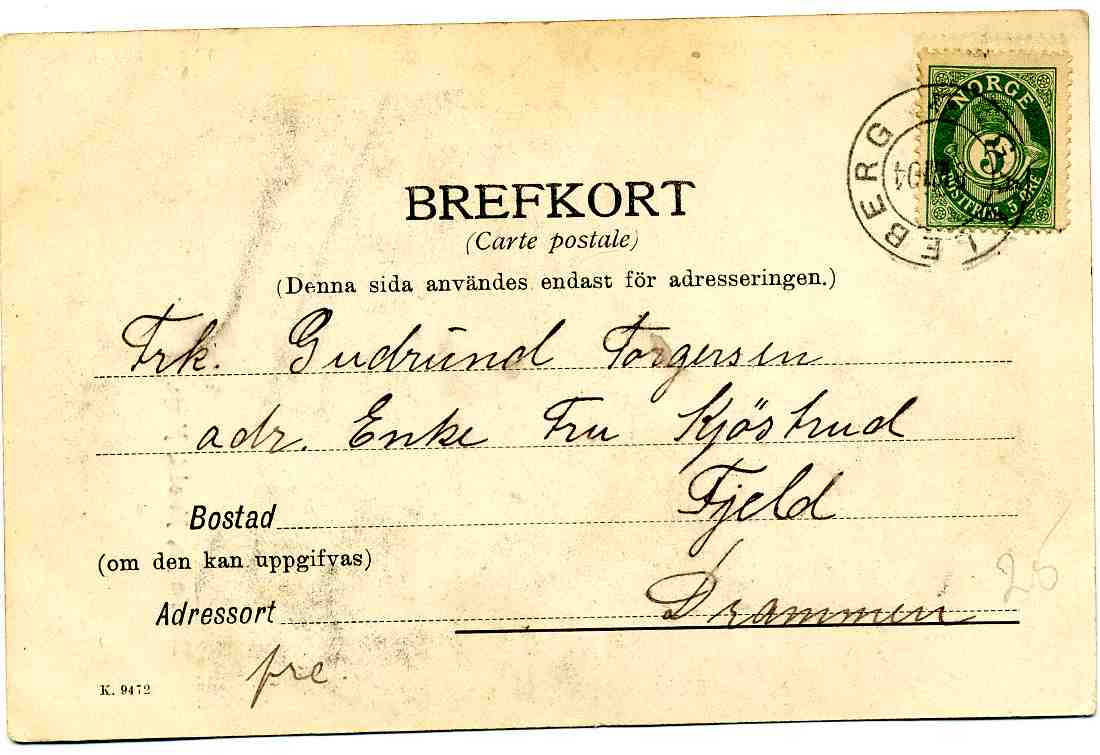 NORGE
5
POSTFRIM. 5 ØRE
LEBERG
BREFKORT
(Carte postale)
(Denna sida användes endast för adresseringen.)
Frk. Gudrund Torgersen
adr. Enke Fru Kjöstrud
Bostad Fjeld
(om den kan uppgifvas)
Adressort Drammen
pre.
K. 9472
25